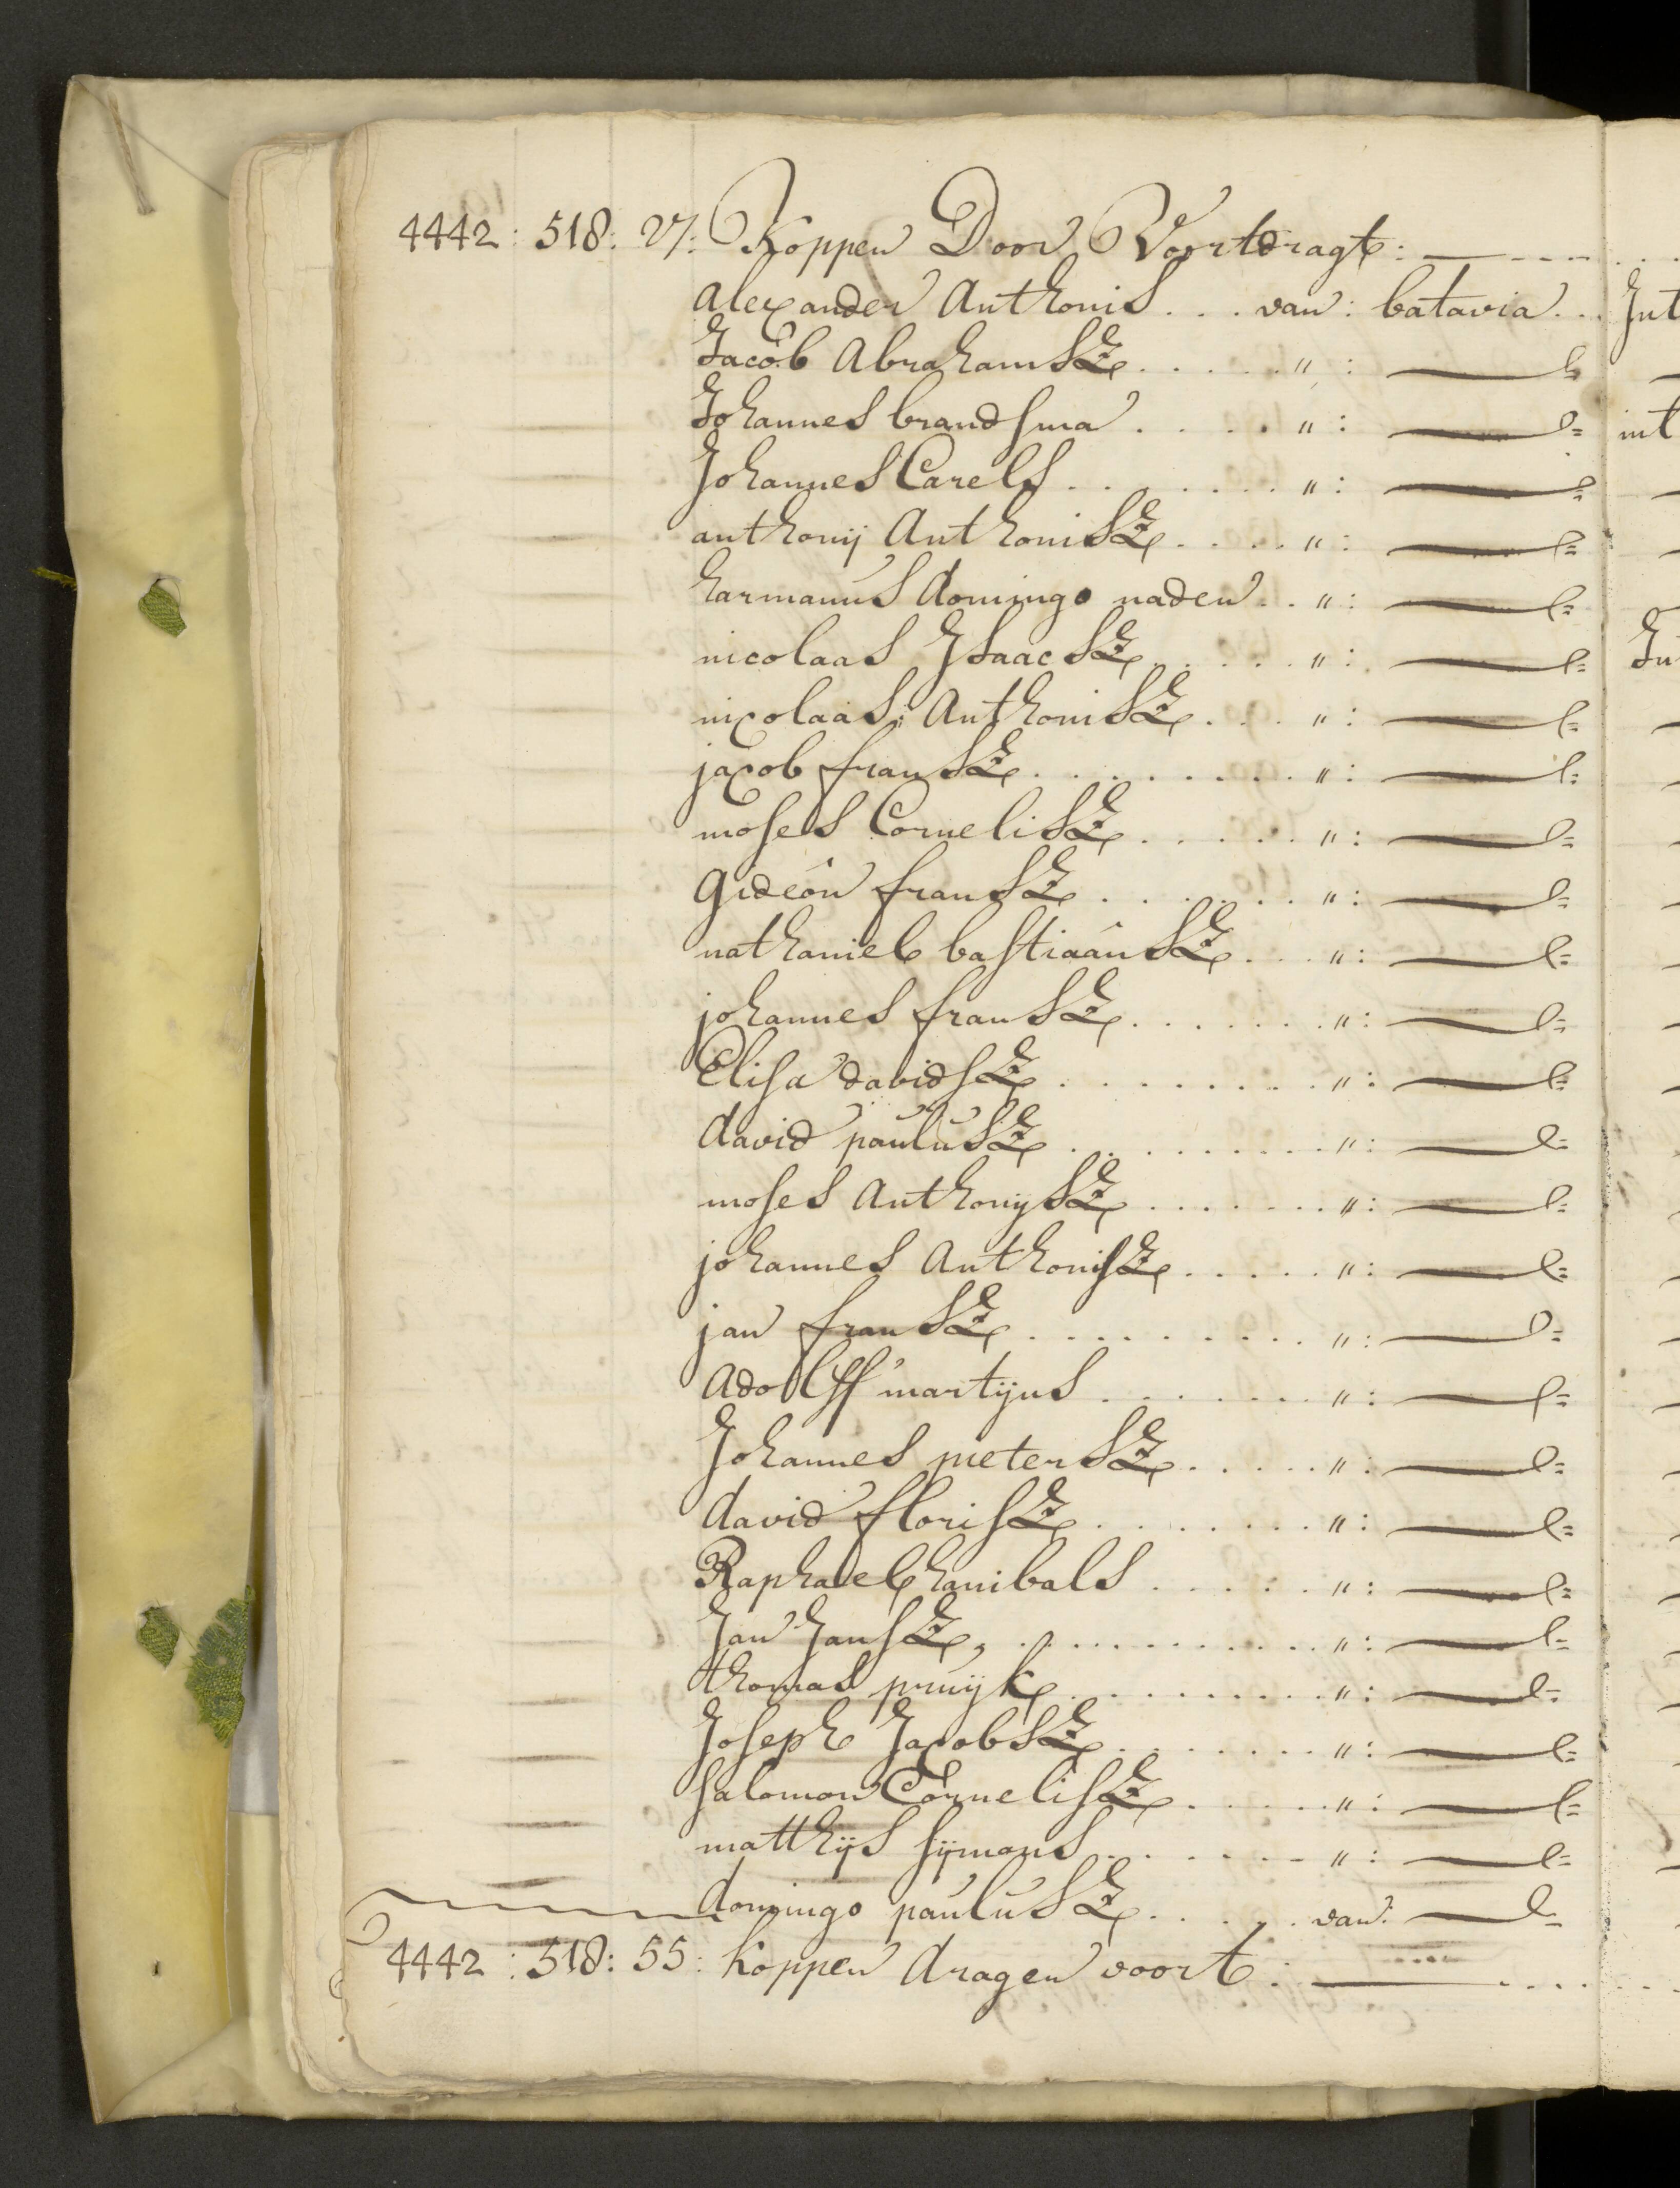 4442: 518: 27: Koppen Door Voortdragt:
alexander Anthonis... van: batavia..
Jacob Abrahamsz.....":
Johannes brandsma.....":
Johannes Carels.......":
anthonij Anthonisz.....":
harmanus domingo naden..":
nicolaas Isaacsz.....":
nicolaas: Anthonisz....":
jacob fransz.........":
moses Cornelisz......":
Gideon fransz.......":
nathaniel bastiaansz....":
johannes fransz.......":
Elisa davidsz.........":
david paulusz.........":
moses Anthonysz.......":
johannes Anthonisz.....":
jan fransz..........":
Adolff martijns.......":
Johannes pietersz.....":
david florisz........":
Raphael hanibals......":
Jan Jansz, ...........":
thomas pruijk.........":
Joseph Jacobsz.......":
salomon Cornelisz.....":
matthijs sijmons......":
domingo paulusz..... van:
4442: 518: 55: koppen dragen voort: